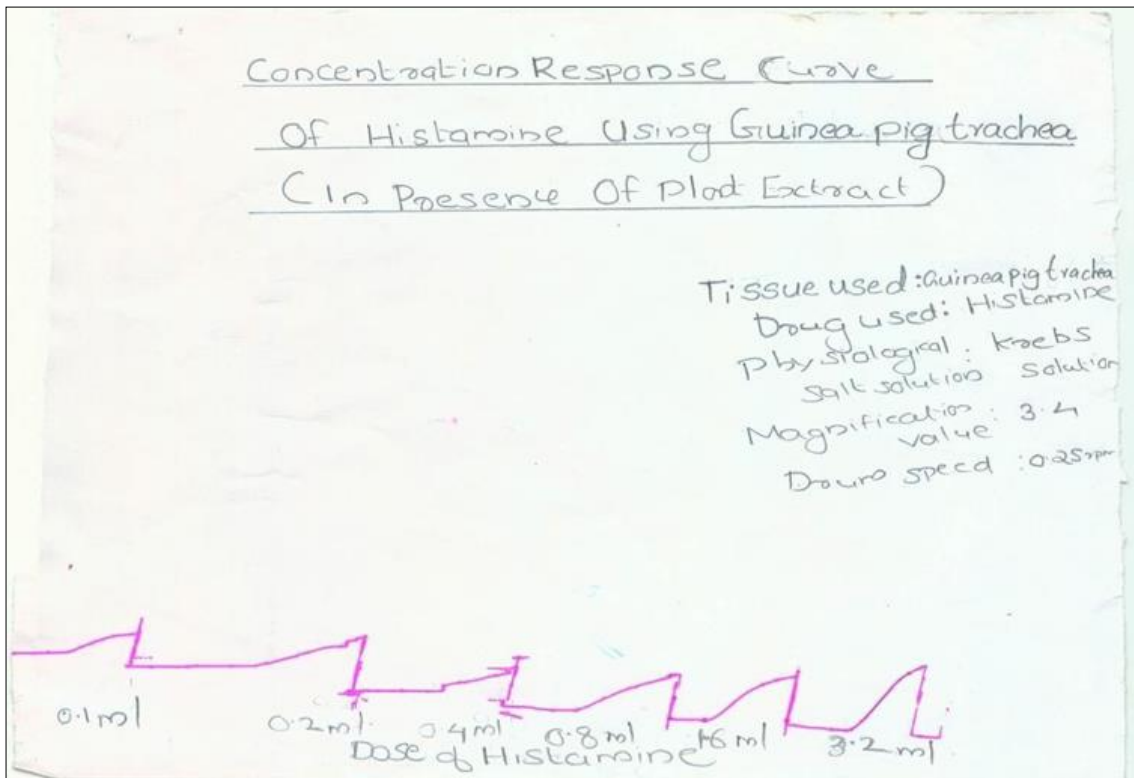 Concentration Response Curve
Of Histamine Using Guinea pig trachea
(In Presence Of Plant Extract)
Tissue used : Guinea pig trachea
Drug used : Histamine
Physiological : Krebs
Salt solution solution
Magnification : 3.4
value
Drum speed : 0.25 rpm
0.1 ml 0.2 ml. 0.4 ml 0.8 ml 1.6 ml 3.2 ml
Dose of Histamine